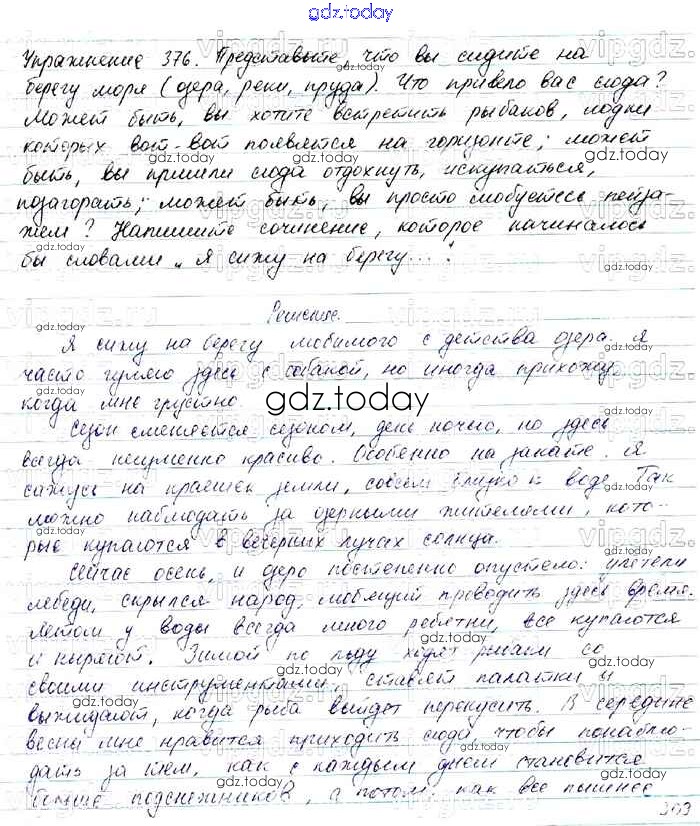 gdz.today
Упражнение 376. Представьте, что вы сидите на
берегу моря (озера, реки, пруда). Что привело вас сюда?
Может быть, вы хотите встретить рыбаков, лодки
которых вот-вот появятся на горизонте; может
быть, вы пришли сюда отдохнуть, искупаться,
позагорать; может быть, вы просто любуетесь пейза-
жем? Напишите сочинение, которое начиналось
бы словами „Я сижу на берегу...".
Решение.
Я сижу на берегу любимого с детства озера. Я
часто гуляю здесь с собакой, но иногда прихожу
когда мне грустно.
gdz.today
Сезон сменяется сезоном, день ночью, но здесь
всегда неизменно красиво. Особенно на закате. Я
сажусь на краешек земли, совсем близко к воде. Так
можно наблюдать за озерными жителями, кото-
рые купаются в вечерних лучах солнца.
Сейчас осень, и озеро постепенно опустело: улетели
лебеди, скрылся народ, любящий проводить здесь время.
Летом у воды всегда много ребятни, все купаются
и ныряют. Зимой по льду ходят рыбаки со
своими инструментами, ставят палатки и
выжидают, когда рыба выйдет перекусить. В середине
весны мне нравится приходить сюда, чтобы понаблю-
дать за тем, как с каждым днем становится
больше подснежников, а потом, как все пышнее
303